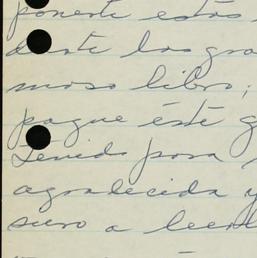 ponerte estas
darte las gra
moso libro;
pague éste g
tenido para
agradecida y
suro a leerl